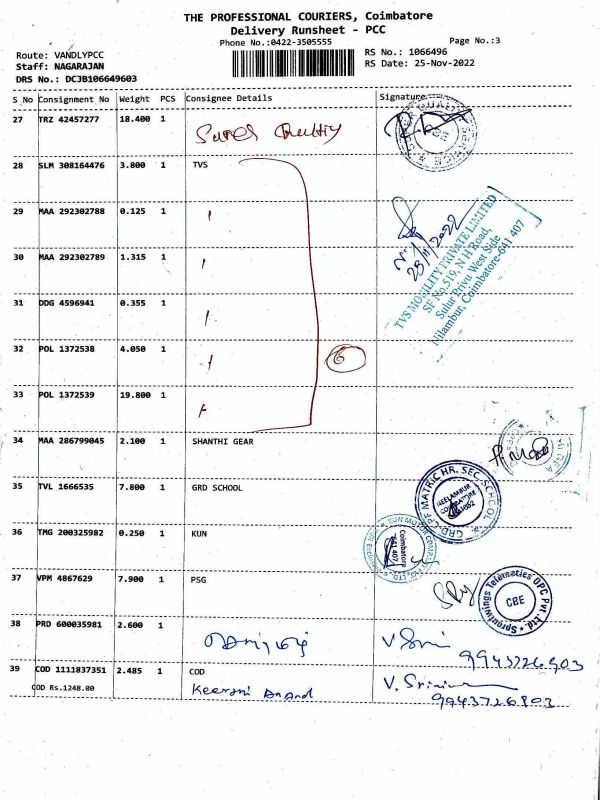 THE PROFESSIONAL COURIERS, Coimbatore
Delivery Runsheet - PCC
Phone No.:0422-3505555
Page No.:3
Route: VANDLYPCC
Staff: NAGARAJAN
DRS No.: DCJB106649603
RS No.: 1066496
RS Date: 25-Nov-2022
S No Consignment No Weight PCS Consignee Details Signature
27 TRZ 42457277 18.400 1 Super Quality
28 SLM 308164476 3.800 1 TVS
29 MAA 292302788 0.125 1
25/11/2022
30 MAA 292302789 1.315 1
TVS MOBILITY PRIVATE LIMITED
SF No.519, N H Road,
Sulur Privu West Side
Nilambur, Coimbatore-641 407
31 DDG 4596941 0.355 1
32 POL 1372538 4.050 1
6
33 POL 1372539 19.800 1
34 MAA 286799045 2.100 1 SHANTHI GEAR
35 TVL 1666535 7.800 1 GRD SCHOOL
GRD-CPF MATRIC HR. SEC. SCHOOL
NEELAMBUR
COIMBATORE
36 TMG 200325982 0.250 1 KUN
Coimbatore
641 407
37 VPM 4867629 7.900 1 PSG
Sprontwings Telematics OPC Pvt. Ltd.
CBE
38 PRD 600035981 2.600 1
9943726903
39 COD 1111837351 2.485 1 COD
COD Rs.1248.00
Keerthi Anand
V. Srini
9943726903